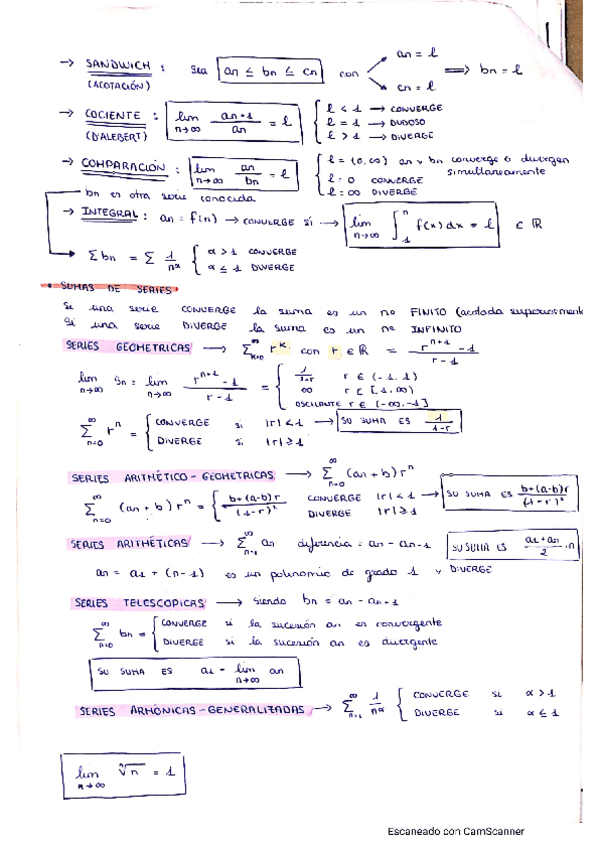 → SANDWICH : sea an ≤ bn ≤ cn con an = l
cn = l ⟹ bn = l
(ACOTACIÓN)
→ COCIENTE : lim n→∞ an+1/an = l { l < 1 → CONVERGE
(D'ALEBERT) l = 1 → DUDOSO
l > 1 → DIVERGE
→ COMPARACIÓN : lim n→∞ an/bn = l { l = (0, ∞) an y bn converge o divergen
simultaneamente
l = 0 CONVERGE
l = ∞ DIVERGE
bn es otra serie conocida
→ INTEGRAL : an = f(n) → CONVERGE si → lim n→∞ ∫₁ⁿ f(x)dx = l ∈ ℝ
Σ bn = Σ 1/n^α { α > 1 CONVERGE
α ≤ 1 DIVERGE
• SUMAS DE SERIES
Si una serie CONVERGE la suma es un nº FINITO (acotada superiorment
Si una serie DIVERGE la suma es un nº INFINITO
SERIES GEOMETRICAS → Σ k=0 ∞ r^k con r ∈ ℝ = r^(n+1) - 1 / r - 1
lim n→∞ Sn = lim n→∞ r^(n+1) - 1 / r - 1 = { 1/1-r r ∈ (-1, 1)
∞ r ∈ [1, ∞)
OSCILANTE r ∈ (-∞, -1]
Σ n=0 ∞ r^n = { CONVERGE si |r| < 1 → SU SUMA ES 1/1-r
DIVERGE si |r| ≥ 1
SERIES ARITMÉTICO - GEOMETRICAS → Σ n=0 ∞ (an + b) r^n
Σ n=0 ∞ (an + b) r^n = { b+(a-b)r / (1-r)² CONVERGE |r| < 1 → SU SUMA ES b+(a-b)r / (1-r)²
DIVERGE |r| ≥ 1
SERIES ARITMÉTICAS → Σ n=1 ∞ an diferencia = an - an-1 SU SUMA ES a1 + an / 2 · n
an = a1 + (n-1) es un polinomio de grado 1 y DIVERGE
SERIES TELESCOPICAS → siendo bn = an - an+1
Σ n=0 ∞ bn = { CONVERGE si la sucesión an es convergente
DIVERGE si la sucesión an es divergente
SU SUMA ES a1 - lim n→∞ an
SERIES ARMÓNICAS - GENERALIZADAS → Σ n=1 ∞ 1/n^α { CONVERGE si α > 1
DIVERGE si α ≤ 1
lim n→∞ ⁿ√n = 1
Escaneado con CamScanner